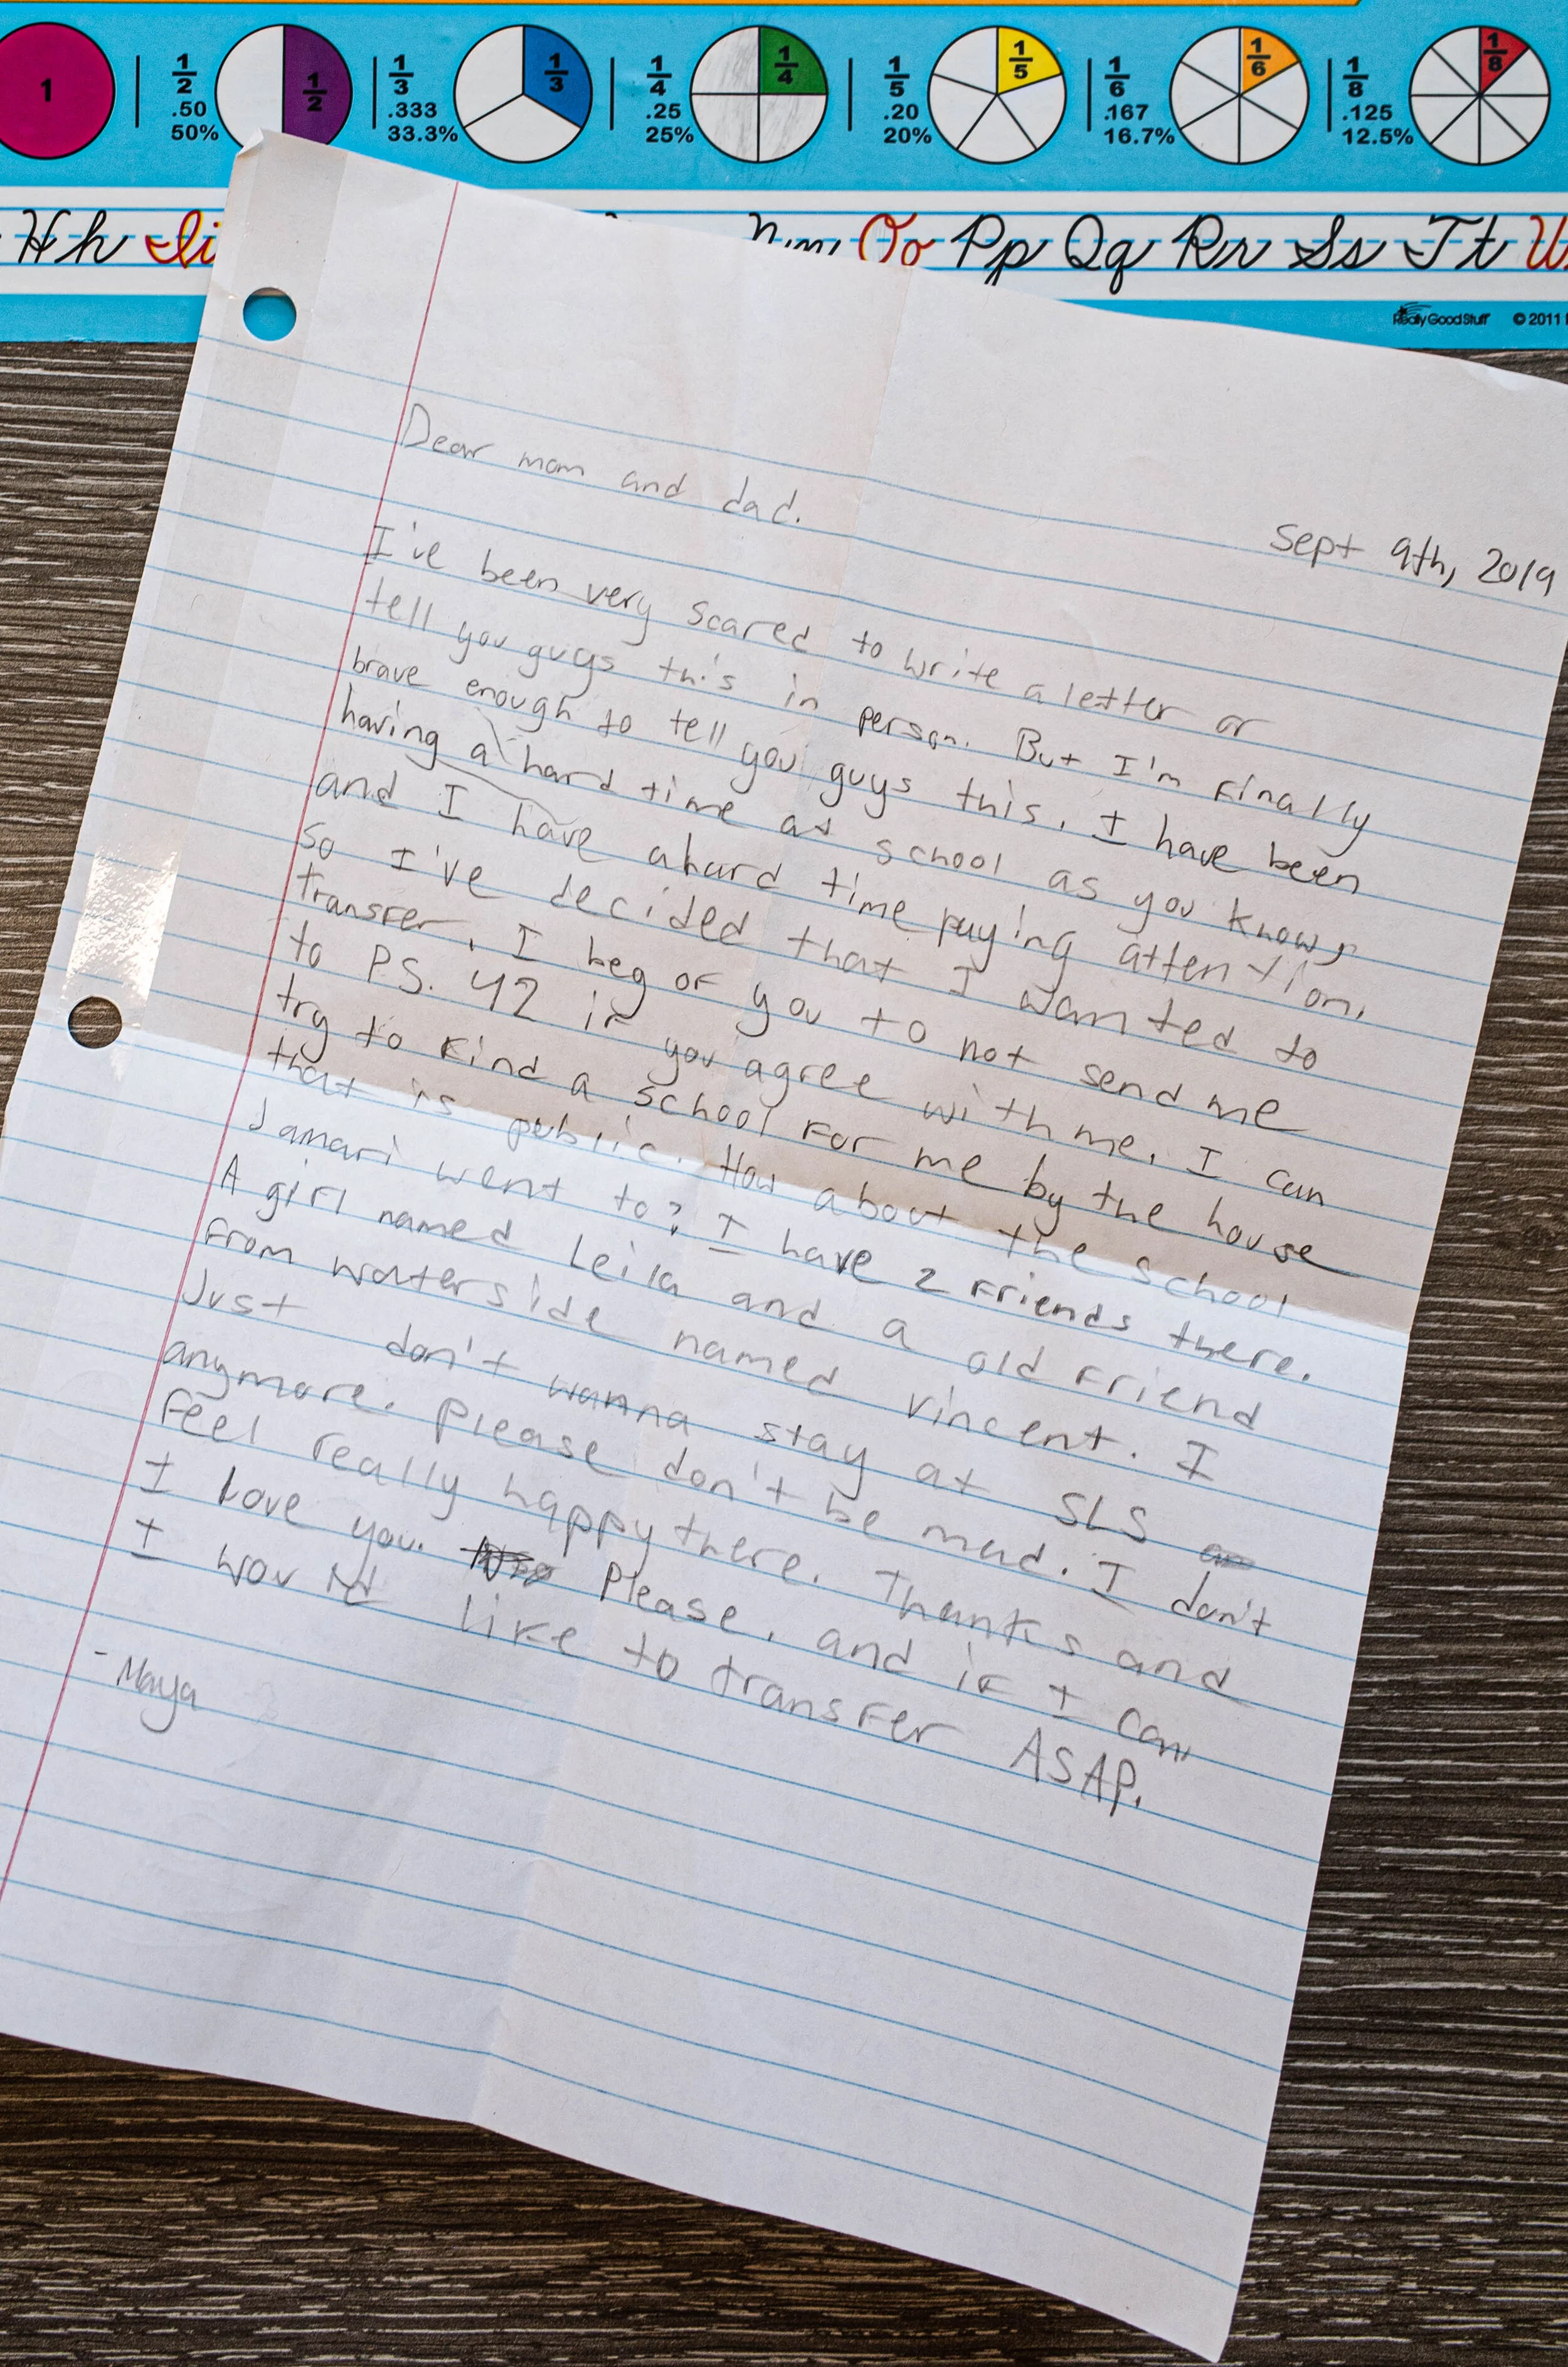 1
1/2
.50
50%
1/2
1/3
.333
33.3%
1/3
1/4
.25
25%
1/4
1/5
.20
20%
1/5
1/6
.167
16.7%
1/6
1/8
.125
12.5%
1/8
Hh Ii Oo Pp Qq Rr Ss Tt
Really Good Stuff © 2011
Sept 9th, 2019
Dear mom and dad.
I've been very scared to write a letter or
tell you guys this in person. But I'm finally
brave enough to tell you guys this. I have been
having a hard time at school as you know,
and I have a hard time paying attention.
So I've decided that I wanted to
transfer. I beg of you to not send me
to P.S. 42 if you agree with me. I can
try to find a school for me by the house
that is public. How about the school
Jamari went to? I have 2 friends there.
A girl named Leila and a old friend
from waterside named vincent. I
Just don't wanna stay at SLS
anymore. Please don't be mad. I don't
feel really happy there. Thanks and
I love you. Please, and if I can
I would like to transfer ASAP.
- Maya